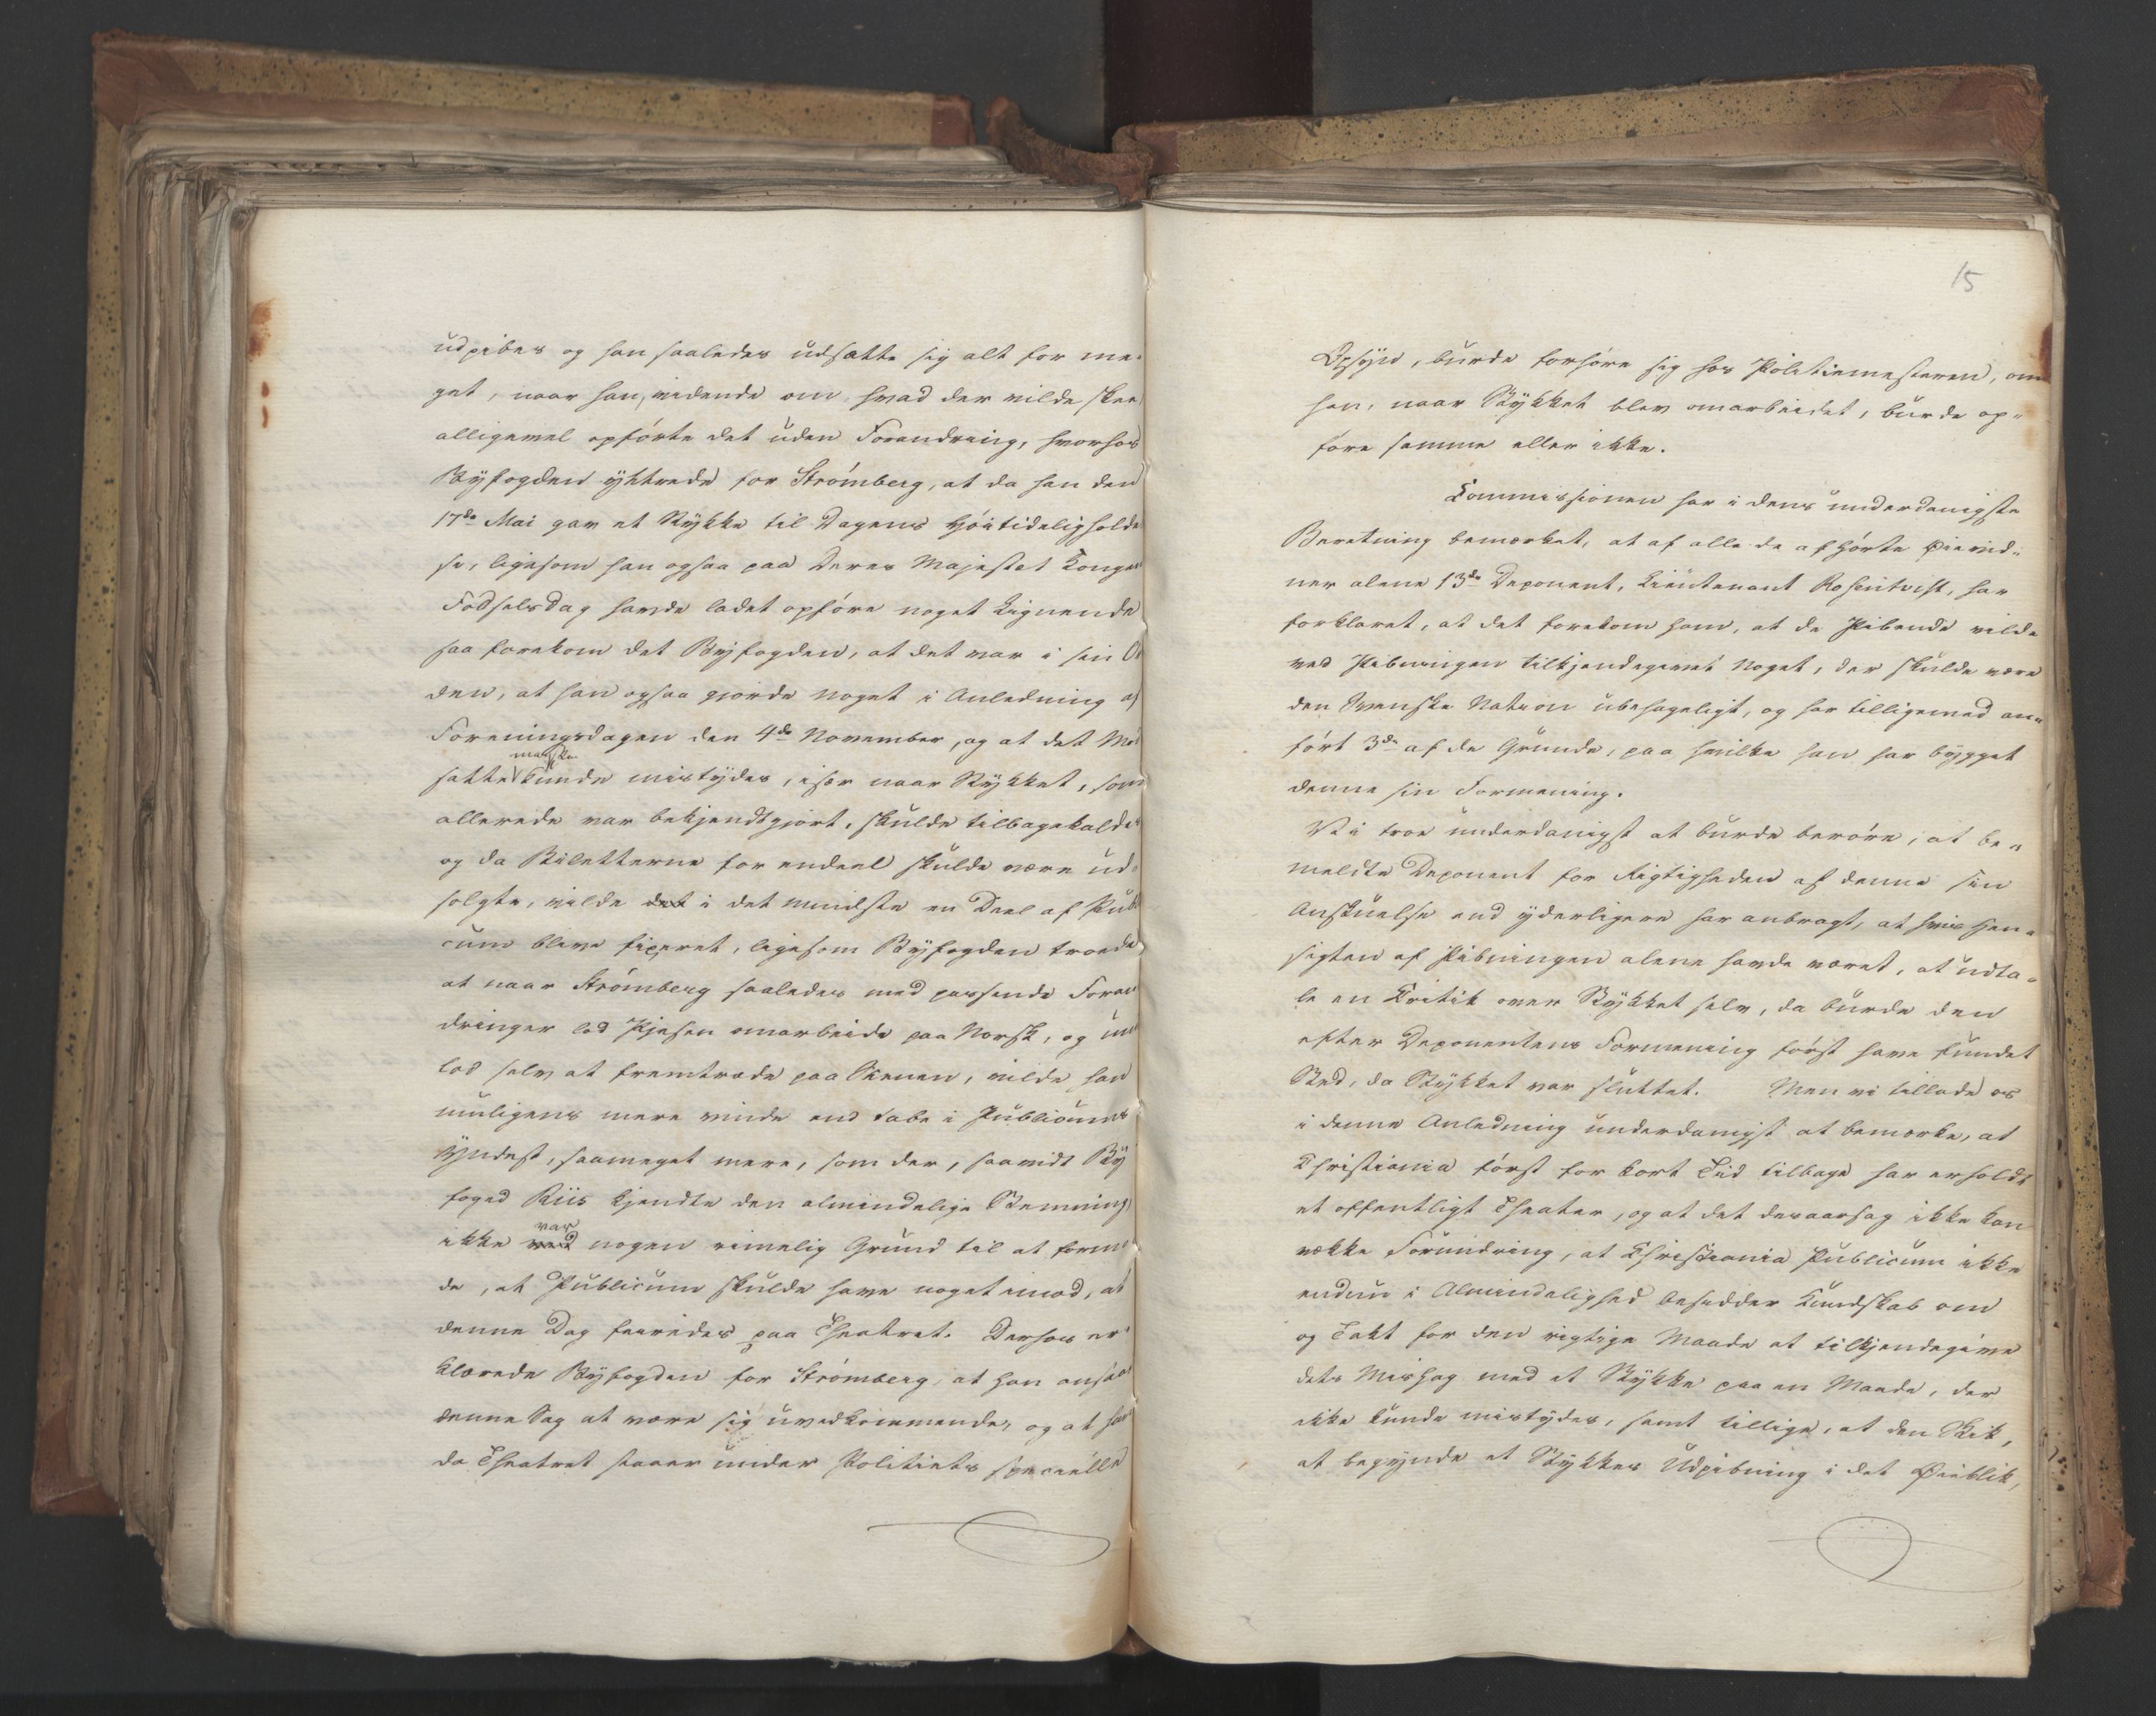 udpibes og han saaledes udsatte sig alt for me-
get, naar han, vidende om hvad der vilde skee
alligevel opførte det uden Forandring, hvorhos
Byfogden yttrede for Strømberg, at da han den
17de Mai gav et Stykke til Dagens Høitideligholdel
se, ligesom han ogsaa paa Deres Majestet Kongens
Fødselsdag havde ladet opføre noget Lignende
saa forekom det Byfogden, at det var i sin Or
den, at han ogsaa gjorde noget i Anledning af
Foreningsdagen den 4de November, og at det Mod
maaskee
satte kunde mistydes, især naar Stykket, som
allerede var bekjendtgjort, skulde tilbagekaldes
og da Biletterne for endeel skulde være ud-
solgte, vilde det i det mindste en Deel af Publi
cum bleve fixeret, ligesom Byfogden troede
at naar Strømberg saaledes med passende Foran
dringer lod Pjesen omarbeide paa Norsk, og und
lod selv at fremtræde paa Scenen, vilde han
muligens mere vinde end tabe i Publicums
Yndest, saameget mere, som der, saavidt By
foged Riis kjendte den almindelige Stemning
var
ikke ved nogen rimelig Grund til at forme
de, at Publicum skulde have noget imod, at
denne Dag feiredes paa Theatret. Derhos er
klærede Byfogden for Strømberg, at han ansaae
denne Sag at være sig uvedkommende, og at han
da Theatret staaer under Politiets specielle
15
Opsyn, burde forhøre sig hos Politiemesteren, om
han, naar Stykket blev omarbeidet, burde op-
føre samme eller ikke.
Commissionen har i dens underdanigste
Beretning bemærket, at af alle de afhørte Øievid-
ner alene 13de Deponent, Lieutenant Rosentvist, har
forklaret, at det forekom ham, at de Pibende vilde
ved Pibningen tilkjendegivet Noget, der skulde være
den Svenske Nation ubehageligt, og har tilligemed an-
ført 3de af de Grunde, paa hvilke han har bygget
denne sin Formening.
Vi troe underdanigst at burde berøre, at be-
meldte Deponent for Rigtigheden af denne sin
Anskuelse end yderligere har anbragt, at hvis Hen-
sigten af Pibningen alene havde været, at udta-
le en Critik over Stykket selv, da burde den
efter Deponentens Formening først have fundet
Sted, da Stykket var sluttet. Men vi tillade os
i denne Anledning underdanigst at bemærke, at
Christiania først for kort Tid tilbage har erholdt
et offentligt Theater, og at det desaarsag ikke kan
vække Forundring, at Christiania Publicum ikke
endnu i Almindelighed besidder Kundskab om
og Takt for den rigtige Maade at tilkjendegive
dets Mishag med et Stykke paa en Maade, der
ikke kunde mistydes, samt tillige, at den Skik,
at begynde et Stykkes Udpibning i det Øieblik,